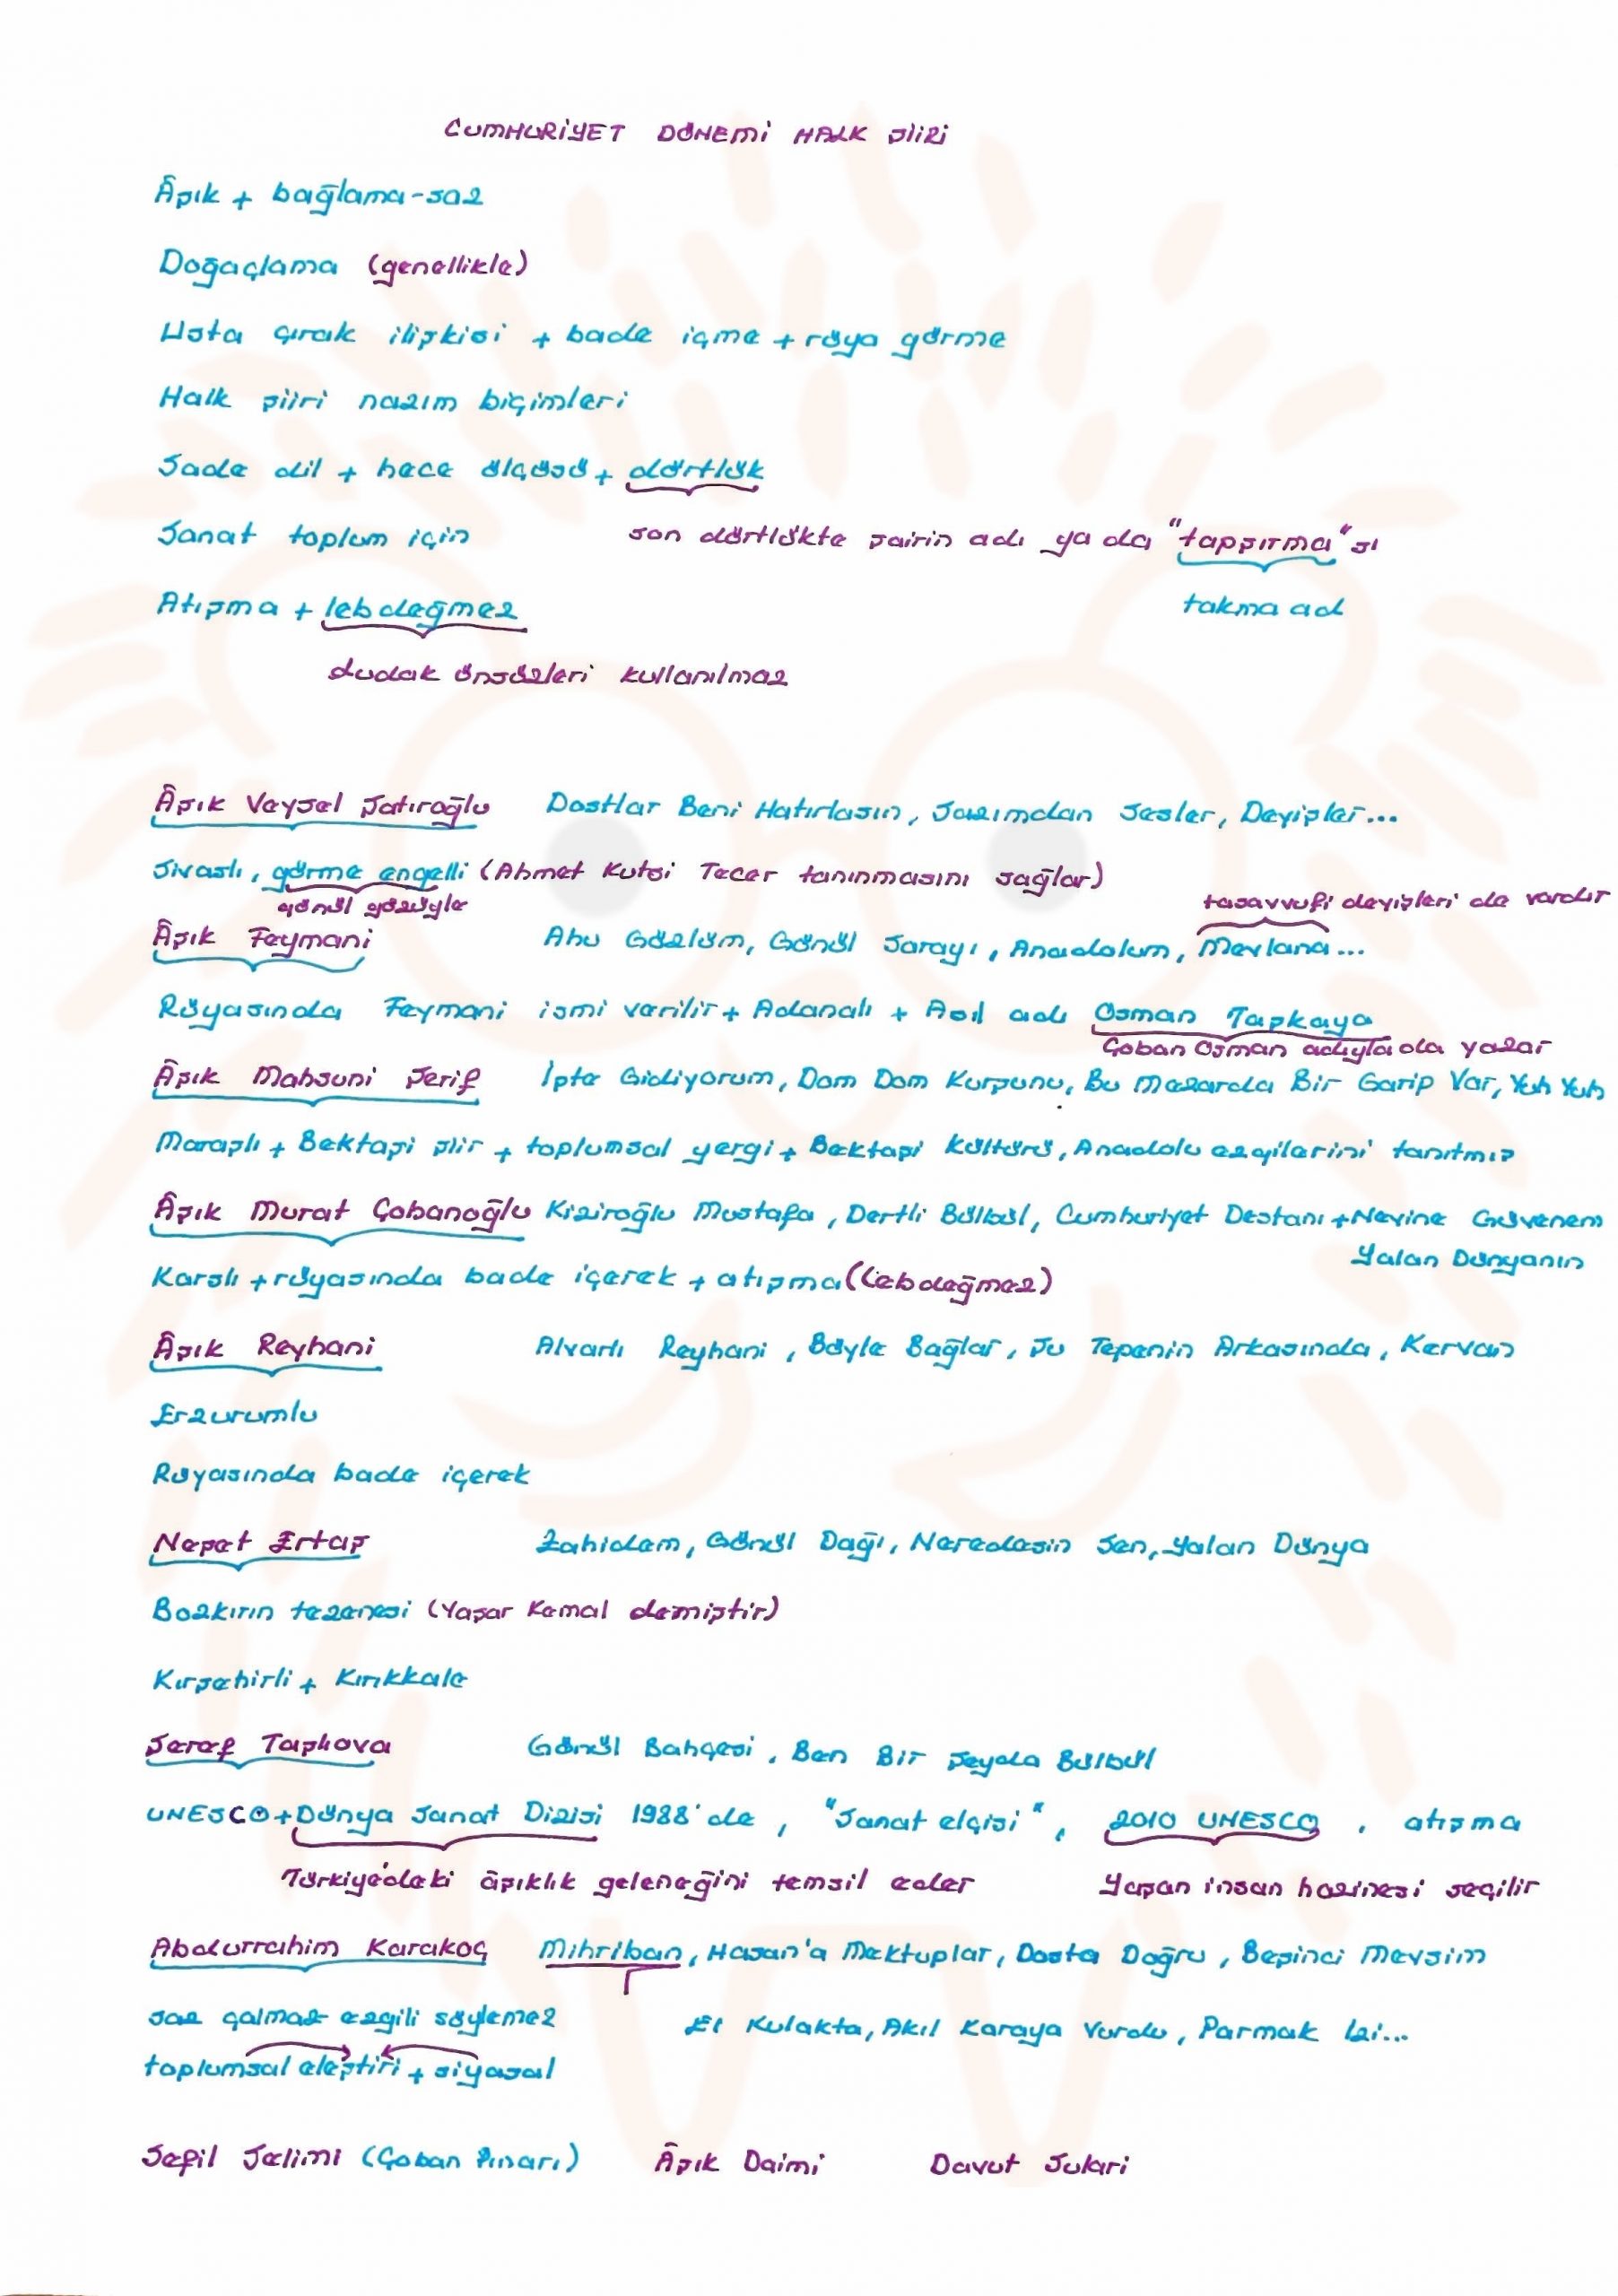 CUMHURİYET DÖNEMİ HALK ŞİİRİ
Âşık + bağlama-saz
Doğaçlama (genellikle)
Usta çırak ilişkisi + bade içme + rüya görme
Halk şiiri nazım biçimleri
Sade dil + hece ölçüsü + dörtlük
Sanat toplum için son dörtlükte şairin adı ya da "tapşırma"sı
Atışma + lebdeğmez takma ad
dudak ünsüzleri kullanılmaz
Âşık Veysel Şatıroğlu Dostlar Beni Hatırlasın, Sazımdan Sesler, Deyişler...
Sivaslı, görme engelli (Ahmet Kutsi Tecer tanınmasını sağlar)
gönül gözüyle tasavvufi deyişleri de vardır
Âşık Feymani Ahu Gözlüm, Gönül Sarayı, Anadolum, Mevlana...
Rüyasında Feymani ismi verilir + Adanalı + Asıl adı Osman Taşkaya
Çoban Osman adıyla da yazar
Âşık Mahsuni Şerif İşte Gidiyorum, Dom Dom Kurşunu, Bu Mezarda Bir Garip Var, Yuh Yuh
Maraşlı + Bektaşi şiir + toplumsal yergi + Bektaşi kültürü, Anadolu ezgilerini tanıtmış
Âşık Murat Çobanoğlu Kiziroğlu Mustafa, Dertli Bülbül, Cumhuriyet Destanı + Neyine Güvenem
Yalan Dünyanın
Karslı + rüyasında bade içerek + atışma (Lebdeğmez)
Âşık Reyhani Alvarlı Reyhani, Böyle Bağlar, Şu Tepenin Arkasında, Kervan
Erzurumlu
Rüyasında bade içerek
Neşet Ertaş Zahidem, Gönül Dağı, Neredesin Sen, Yalan Dünya
Bozkırın tezenesi (Yaşar Kemal demiştir)
Kırşehirli + Kırıkkale
Şeref Taşlıova Gönül Bahçesi, Ben Bir Şeyda Bülbül
UNESCO + Dünya Sanat Dizisi 1988'de, "Sanat elçisi", 2010 UNESCO, atışma
Türkiye'deki âşıklık geleneğini temsil eder Yaşan insan hazinesi seçilir
Abdurrahim Karakoç Mihriban, Hasan'a Mektuplar, Dosta Doğru, Beşinci Mevsim
saz çalmaz ezgili söylemez El Kulakta, Akıl Karaya Vurdu, Parmak İzi...
toplumsal eleştiri + siyasal
Sefil Selimi (Çoban Pınarı) Âşık Daimi Davut Sulari